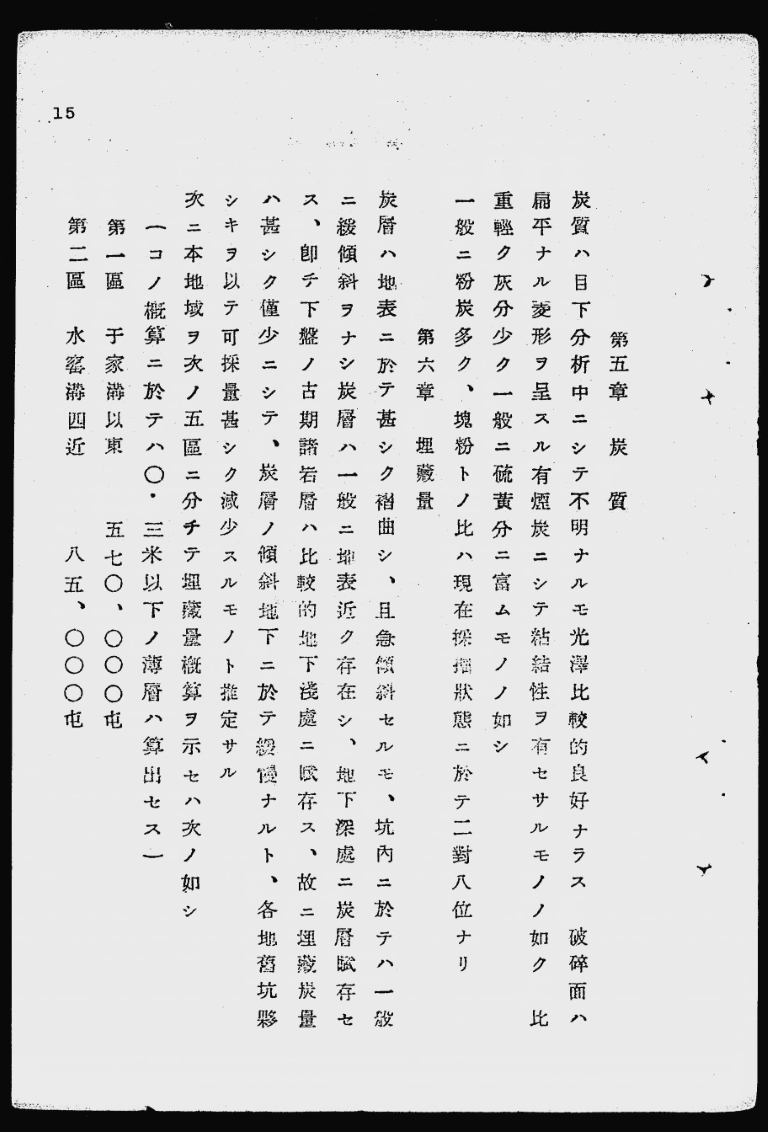 15
第五章　炭　質
炭質ハ目下分析中ニシテ不明ナルモ光澤比較的良好ナラス　破碎面ハ
扁平ナル菱形ヲ呈スル有煙炭ニシテ粘結性ヲ有セサルモノノ如ク　比
重輕ク灰分少ク一般ニ硫黃分ニ富ムモノノ如シ
一般ニ粉炭多ク、塊粉トノ比ハ現在採掘狀態ニ於テ二對八位ナリ
第六章　埋藏量
炭層ハ地表ニ於テ甚シク褶曲シ、且急傾斜セルモ、坑內ニ於テハ一般
ニ緩傾斜ヲナシ炭層ハ一般ニ地表近ク存在シ、地下深處ニ炭層賦存セ
ス、卽チ下盤ノ古期諸岩層ハ比較的地下淺處ニ賦存ス、故ニ埋藏炭量
ハ甚シク僅少ニシテ、炭層ノ傾斜地下ニ於テ緩慢ナルト、各地舊坑夥
シキヲ以テ可採量甚シク減少スルモノト推定サル
次ニ本地域ヲ次ノ五區ニ分チテ埋藏量槪算ヲ示セハ次ノ如シ
（コノ槪算ニ於テハ〇・三米以下ノ薄層ハ算出セス）
第一區　于家溝以東　　五七〇、〇〇〇屯
第二區　水窰溝四近　　八五、〇〇〇屯